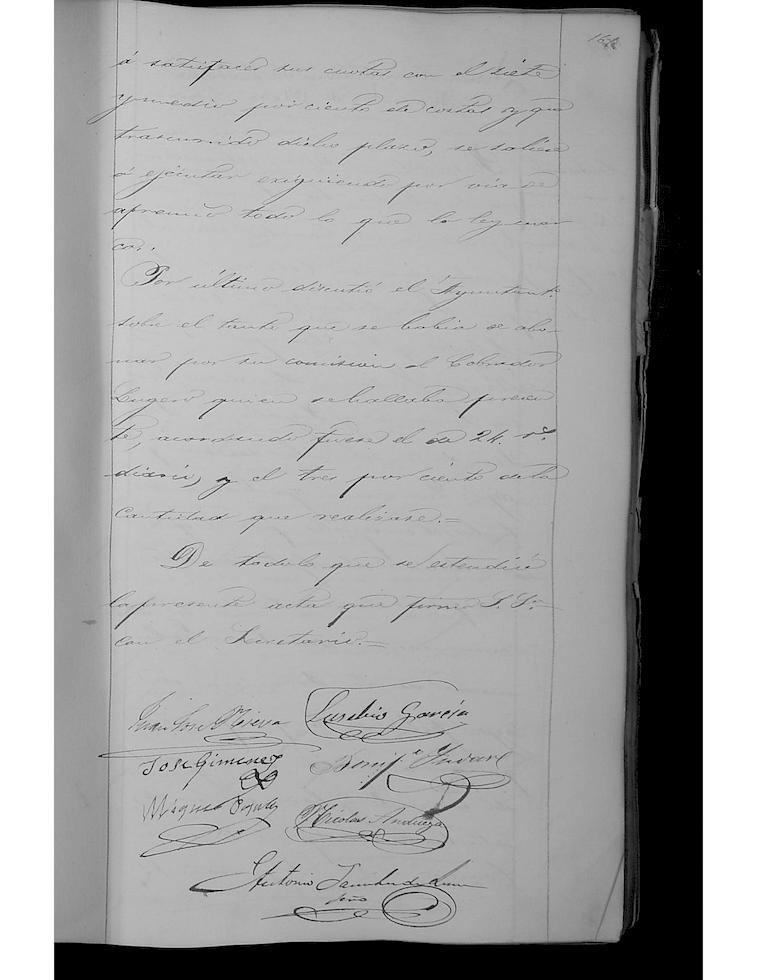 á satisfacer sus cuotas con el siete
y medio por ciento de costas y que
trascurrido dicho plaso, se saliese
á ejecutar exigiendo por via de
apremio todo lo que la ley mar
ca.
Por último discutió el Ayuntamt.
sobre el tanto que se habia de abo-
nar por su comision al Cobrador
Lugero quien se hallaba presen
te, acordando fuese el de 24. rs.
diario, y el tres por ciento de la
cantidad que realizase.=
De todo lo que se estendió
la presente acta que firma S. Sa.=
con el Secretario.=
Juan José Eusebio Garcia
José Gimenez
Miguel Nicolas Andueza
Antonio